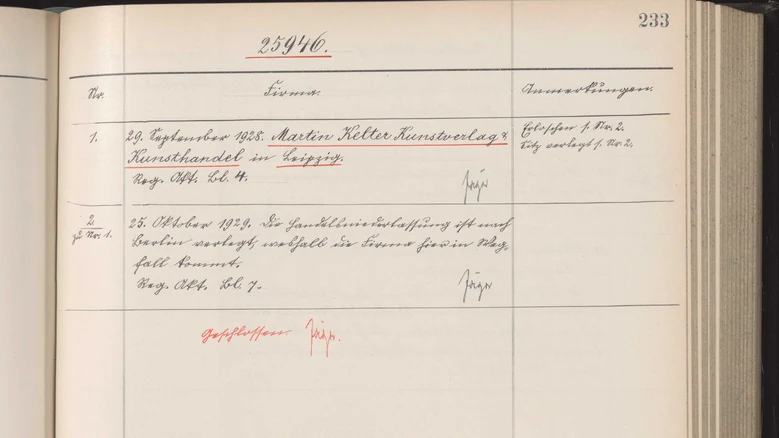 233
25946.
Nr. Firma. Anmerkungen.
1. 29. September 1928. Martin Kelter Kunstverlag &
Kunsthandel in Leipzig.
Reg. Akt. Bl. 4. Jäger
Erloschen s. Nr. 2.
Sitz verlegt s. Nr. 2.
2. 25. Oktober 1929. Die Handelsniederlassung ist nach
zu Nr. 1. Berlin verlegt, weshalb die Firma hier in Weg-
fall kommt.
Reg. Akt. Bl. 7. Jäger
Geschlossen. Jäger.